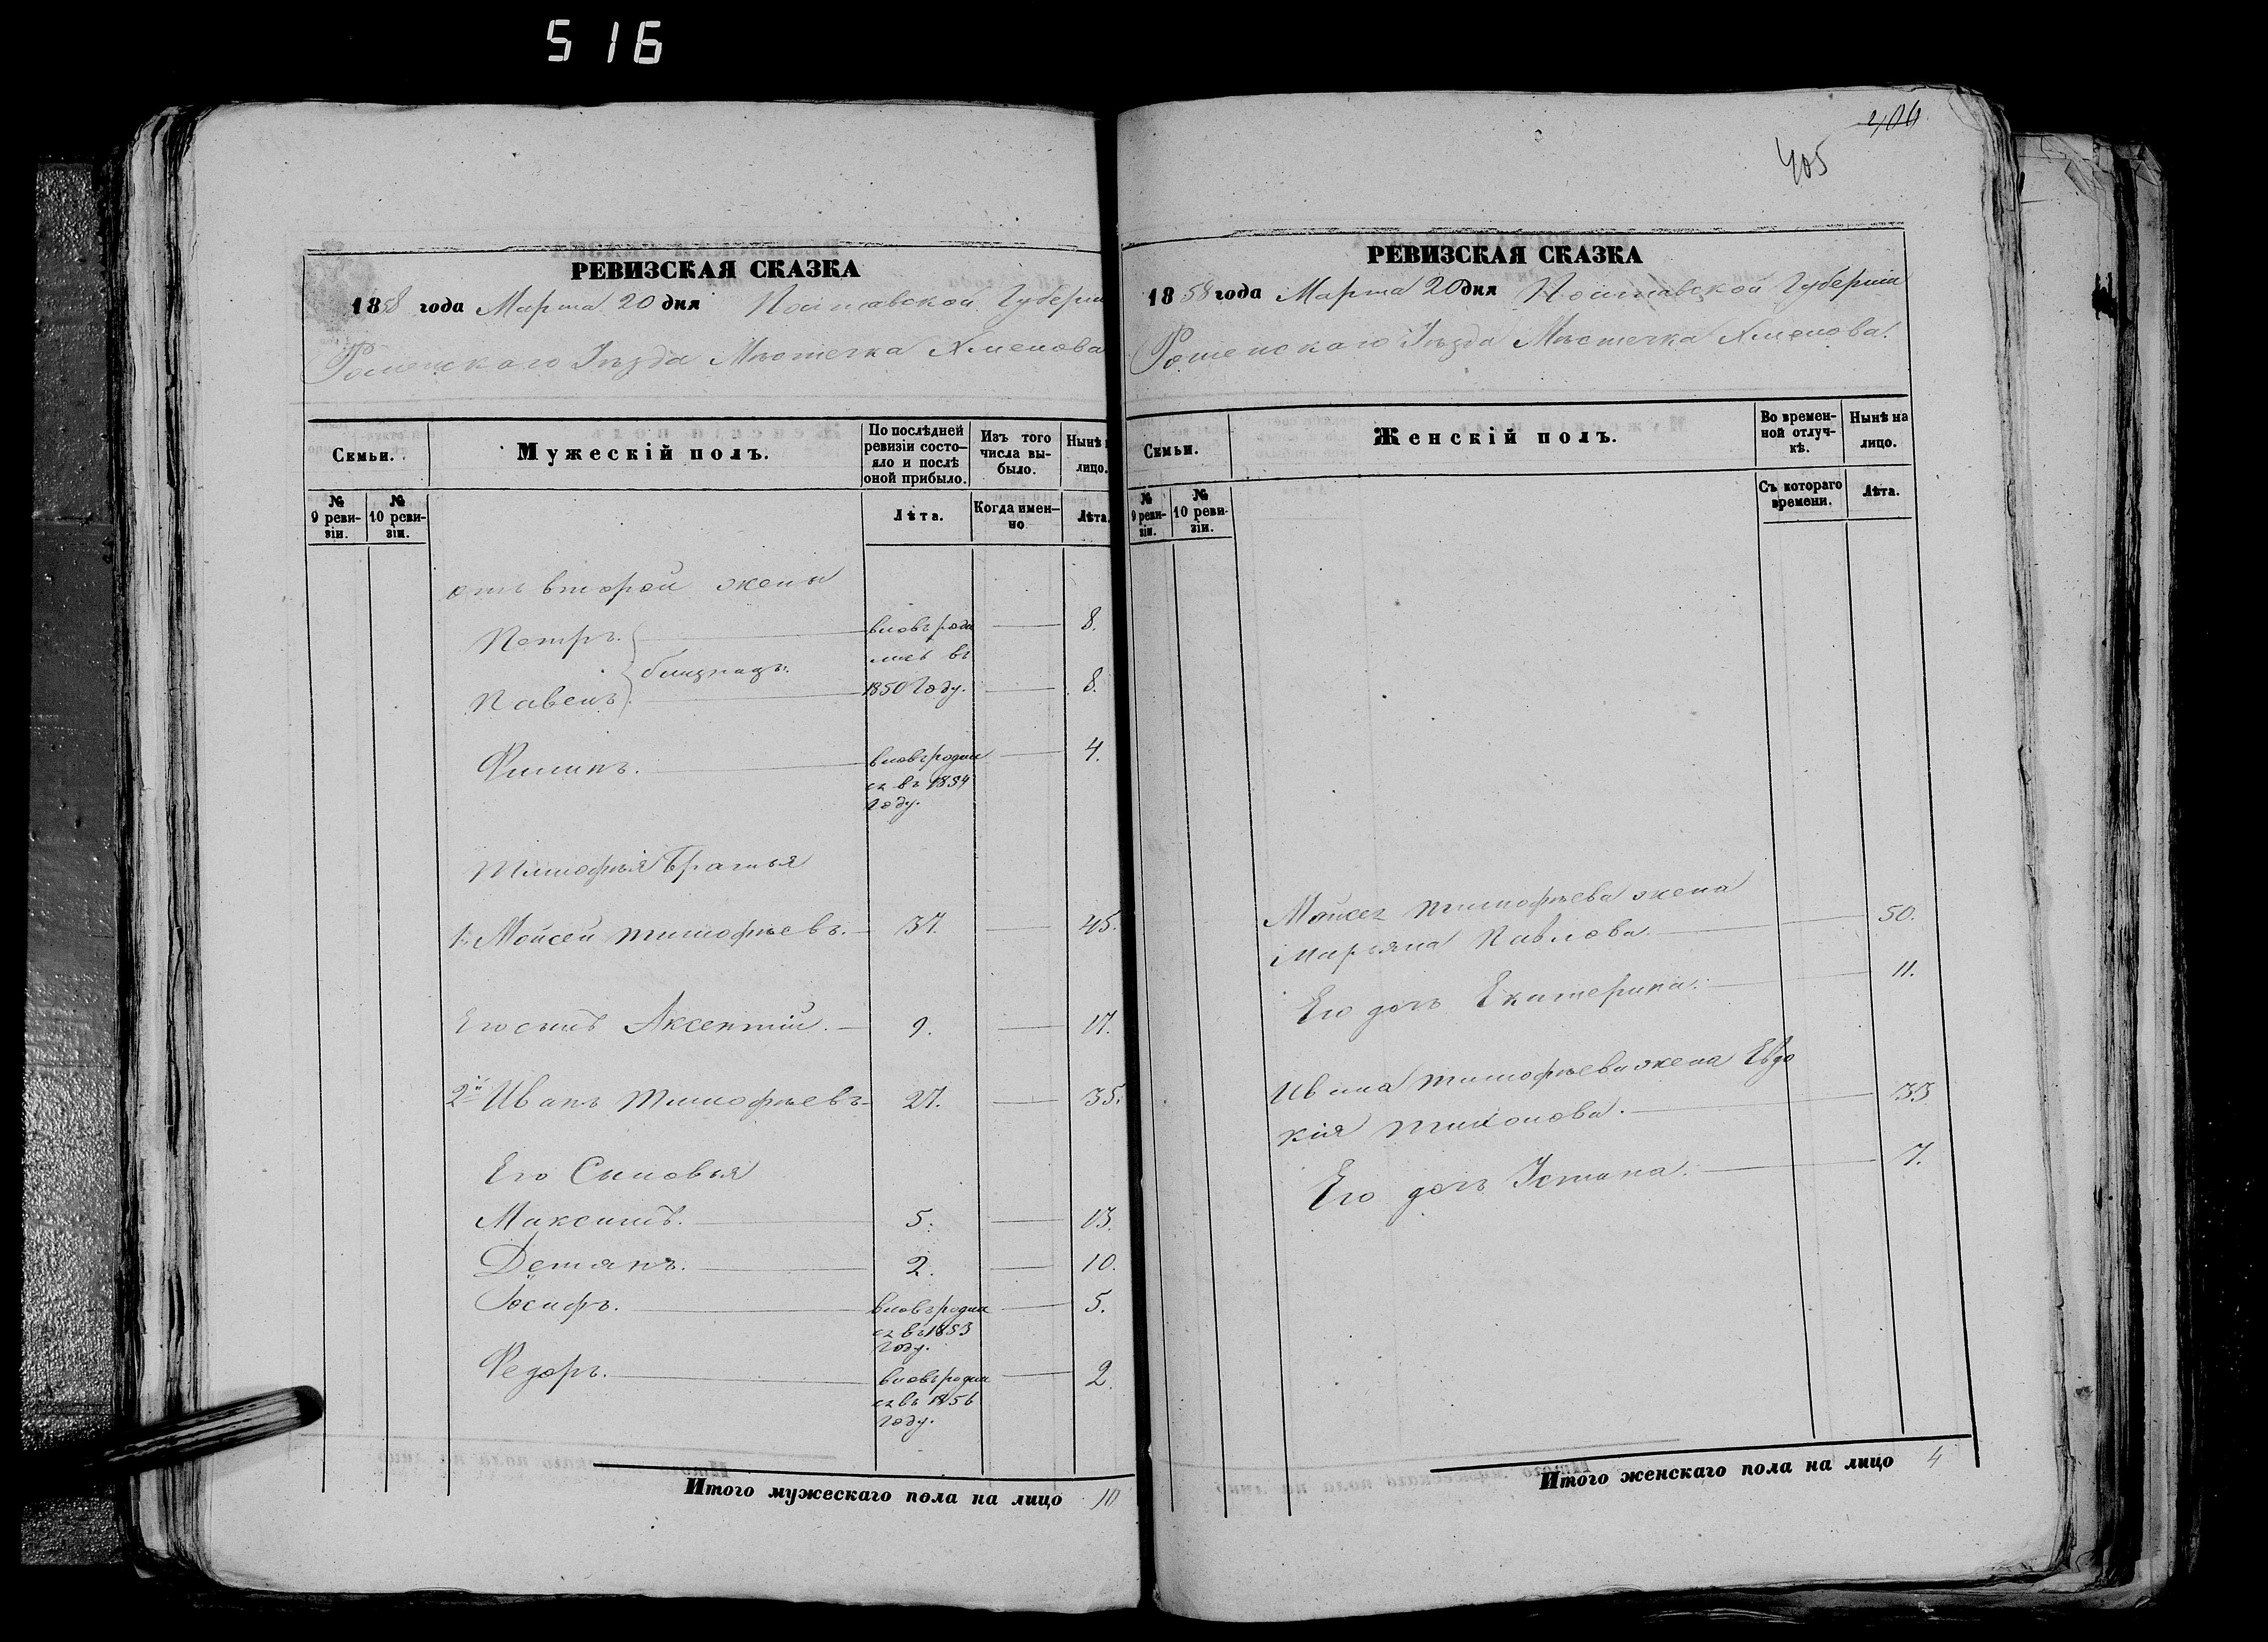 516
РЕВИЗСКАЯ СКАЗКА
1858 года Марта 20 дня Полтавской Губерніи
Роменскаго Уѣзда Мѣстечка Хмелова
Семьи.
Мужескій полъ.
По послѣдней ревизіи состо-
яло и послѣ оной прибыло.
Изъ того числа вы-
было.
Нынѣ
лицо.
№ 9 реви-
зіи.
№ 10 реви-
зіи.
Лѣта.
Когда имен-
но
Лѣта.
отъ второй жены
Петръ. вновь роди 8.
близнецы лись въ
Павелъ 1850 Году. 8.
Филипъ. вновь родил 4.
ся въ 1854
Году.
Тимофѣя Братья
1й Мойсей Тимофѣевъ. 37. 45.
Его сынъ Аксентій. 9. 17.
2й Иванъ Тимофѣевъ 27. 35.
Его Сыновья
Максимъ. 5. 13.
Демянъ. 2. 10.
Іосифъ. вновь родил 5.
ся въ 1853
Году.
Федоръ. вновь родил 2.
ся въ 1856
Году.
Итого мужескаго пола на лицо 10
406
405
РЕВИЗСКАЯ СКАЗКА
1858 года Марта 20 дня Полтавской Губерніи
Роменскаго Уѣзда Мѣстечка Хмелова.
Семьи.
Женскій полъ.
Во времен-
ной отлуч-
кѣ.
Нынѣ на
лицо.
№ 9 реви-
зіи.
№ 10 реви-
зіи.
Съ котораго
времени.
Лѣта.
Мойсея Тимофѣева жена
Марьяна Павлова. 50.
Его дочь Екатерина. 11.
Ивана Тимофѣева жена Евдо
кія Тихонова. 33
Его дочь Устина. 7.
Итого женскаго пола на лицо 4